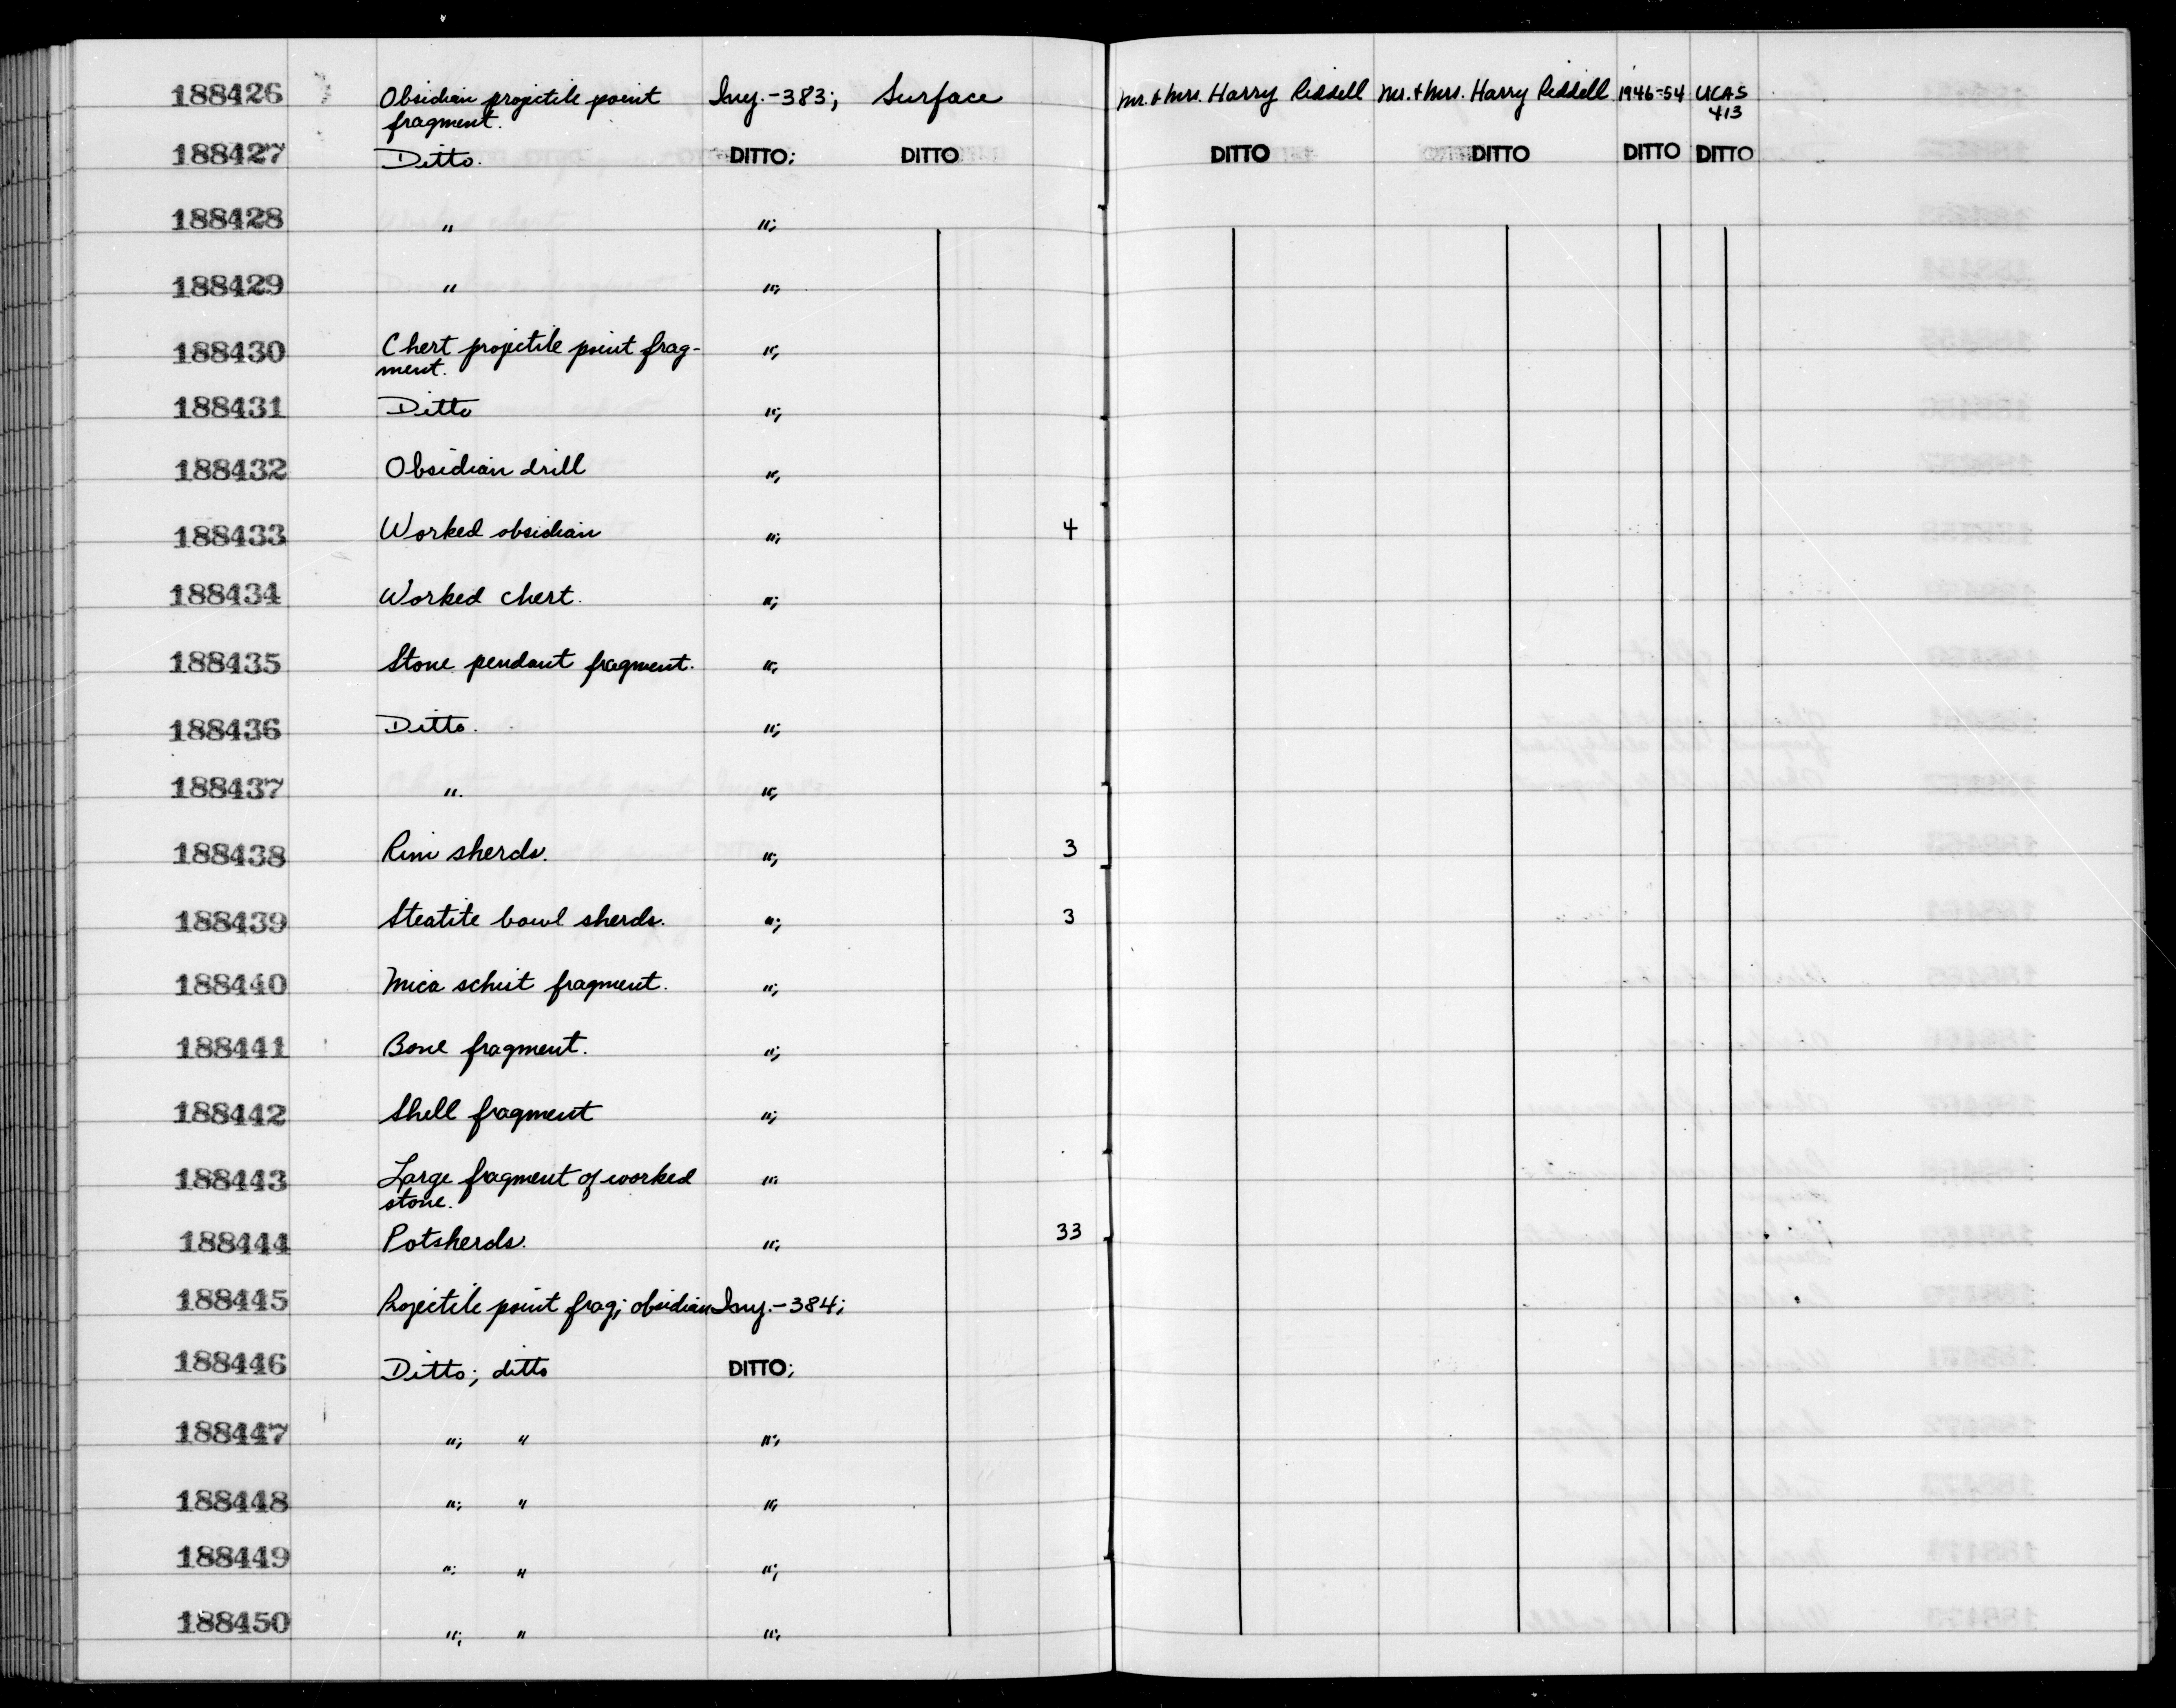 188426 Obsidian projectile point Iny.-383; Surface Mr. & Mrs. Harry Riddell Mr. & Mrs. Harry Riddell 1946-54 UCAS
fragment. 413
188427 Ditto. DITTO; DITTO DITTO DITTO DITTO DITTO
188428 " ";
188429 " ";
188430 Chert projectile point frag- ";
ment.
188431 Ditto ";
188432 Obsidian drill ";
188433 Worked obsidian "; 4
188434 Worked chert. ";
188435 Stone pendant fragment. ";
188436 Ditto. ";
188437 ". ";
188438 Rim sherds. "; 3
188439 Steatite bowl sherds. "; 3
188440 Mica schist fragment. ";
188441 Bone fragment. ";
188442 Shell fragment ";
188443 Large fragment of worked ";
stone.
188444 Potsherds. "; 33
188445 Projectile point frag; obsidian Iny.-384;
188446 Ditto; ditto DITTO;
188447 "; " ";
188448 "; " ";
188449 "; " ";
188450 "; " ";